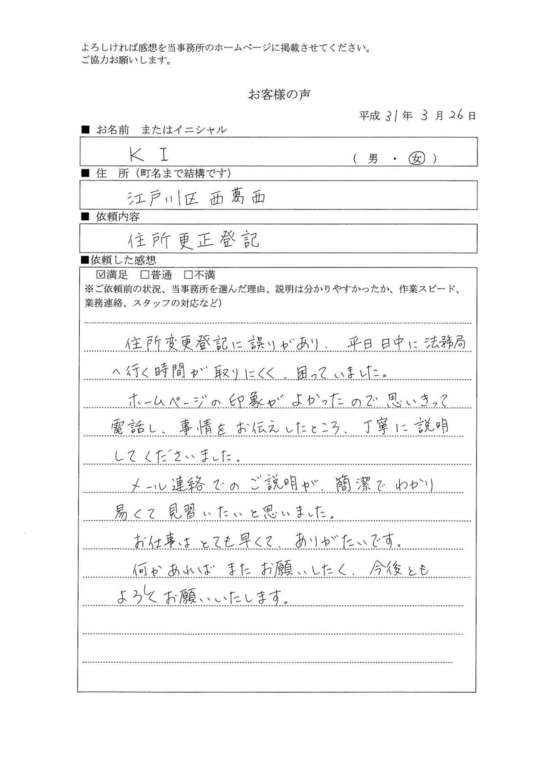 よろしければ感想を当事務所のホームページに掲載させてください。
ご協力お願いします。
お客様の声
平成 31年 3月 26日
■ お名前 またはイニシャル
K I ( 男 ・ 女 )
■ 住 所(町名まで結構です)
江戸川区 西葛西
■ 依頼内容
住所更正登記
■依頼した感想
☑満足 □普通 □不満
※ご依頼前の状況、当事務所を選んだ理由、説明は分かりやすかったか、作業スピード、
業務連絡、スタッフの対応など)
住所変更登記に誤りがあり、平日日中に法務局
へ行く時間が取りにくく、困っていました。
ホームページの印象がよかったので思いきって
電話し、事情をお伝えしたところ、丁寧に説明
してくださいました。
メール連絡でのご説明が、簡潔でわかり
易くて見習いたいと思いました。
お仕事はとても早くて、ありがたいです。
何かあればまたお願いしたく、今後とも
よろしくお願いいたします。